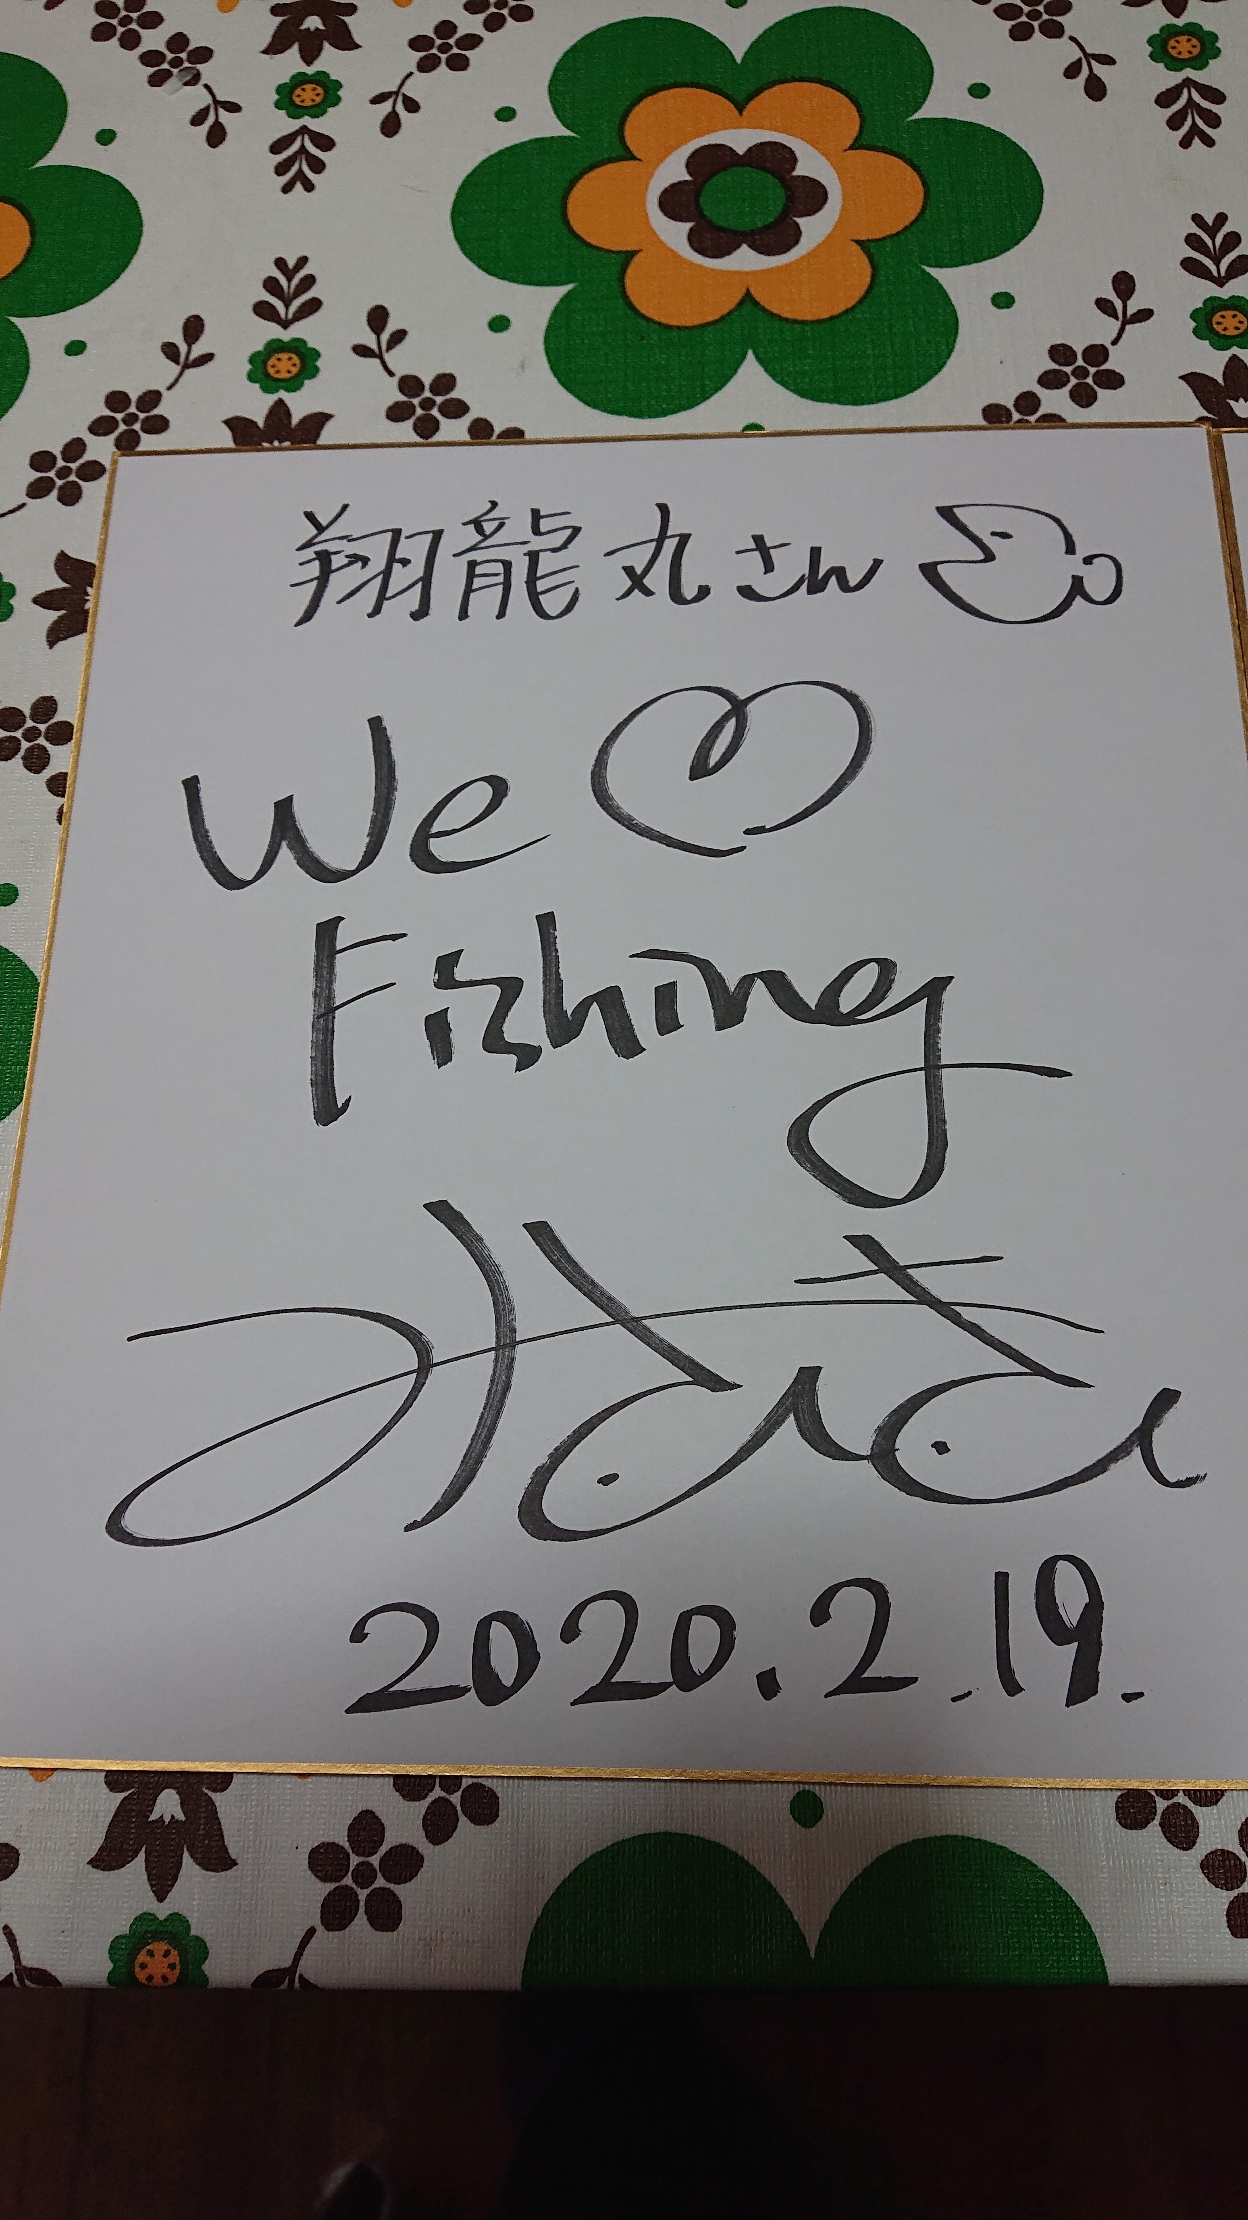 翔龍丸さん
We ♡
Fishing
2020.2.19.